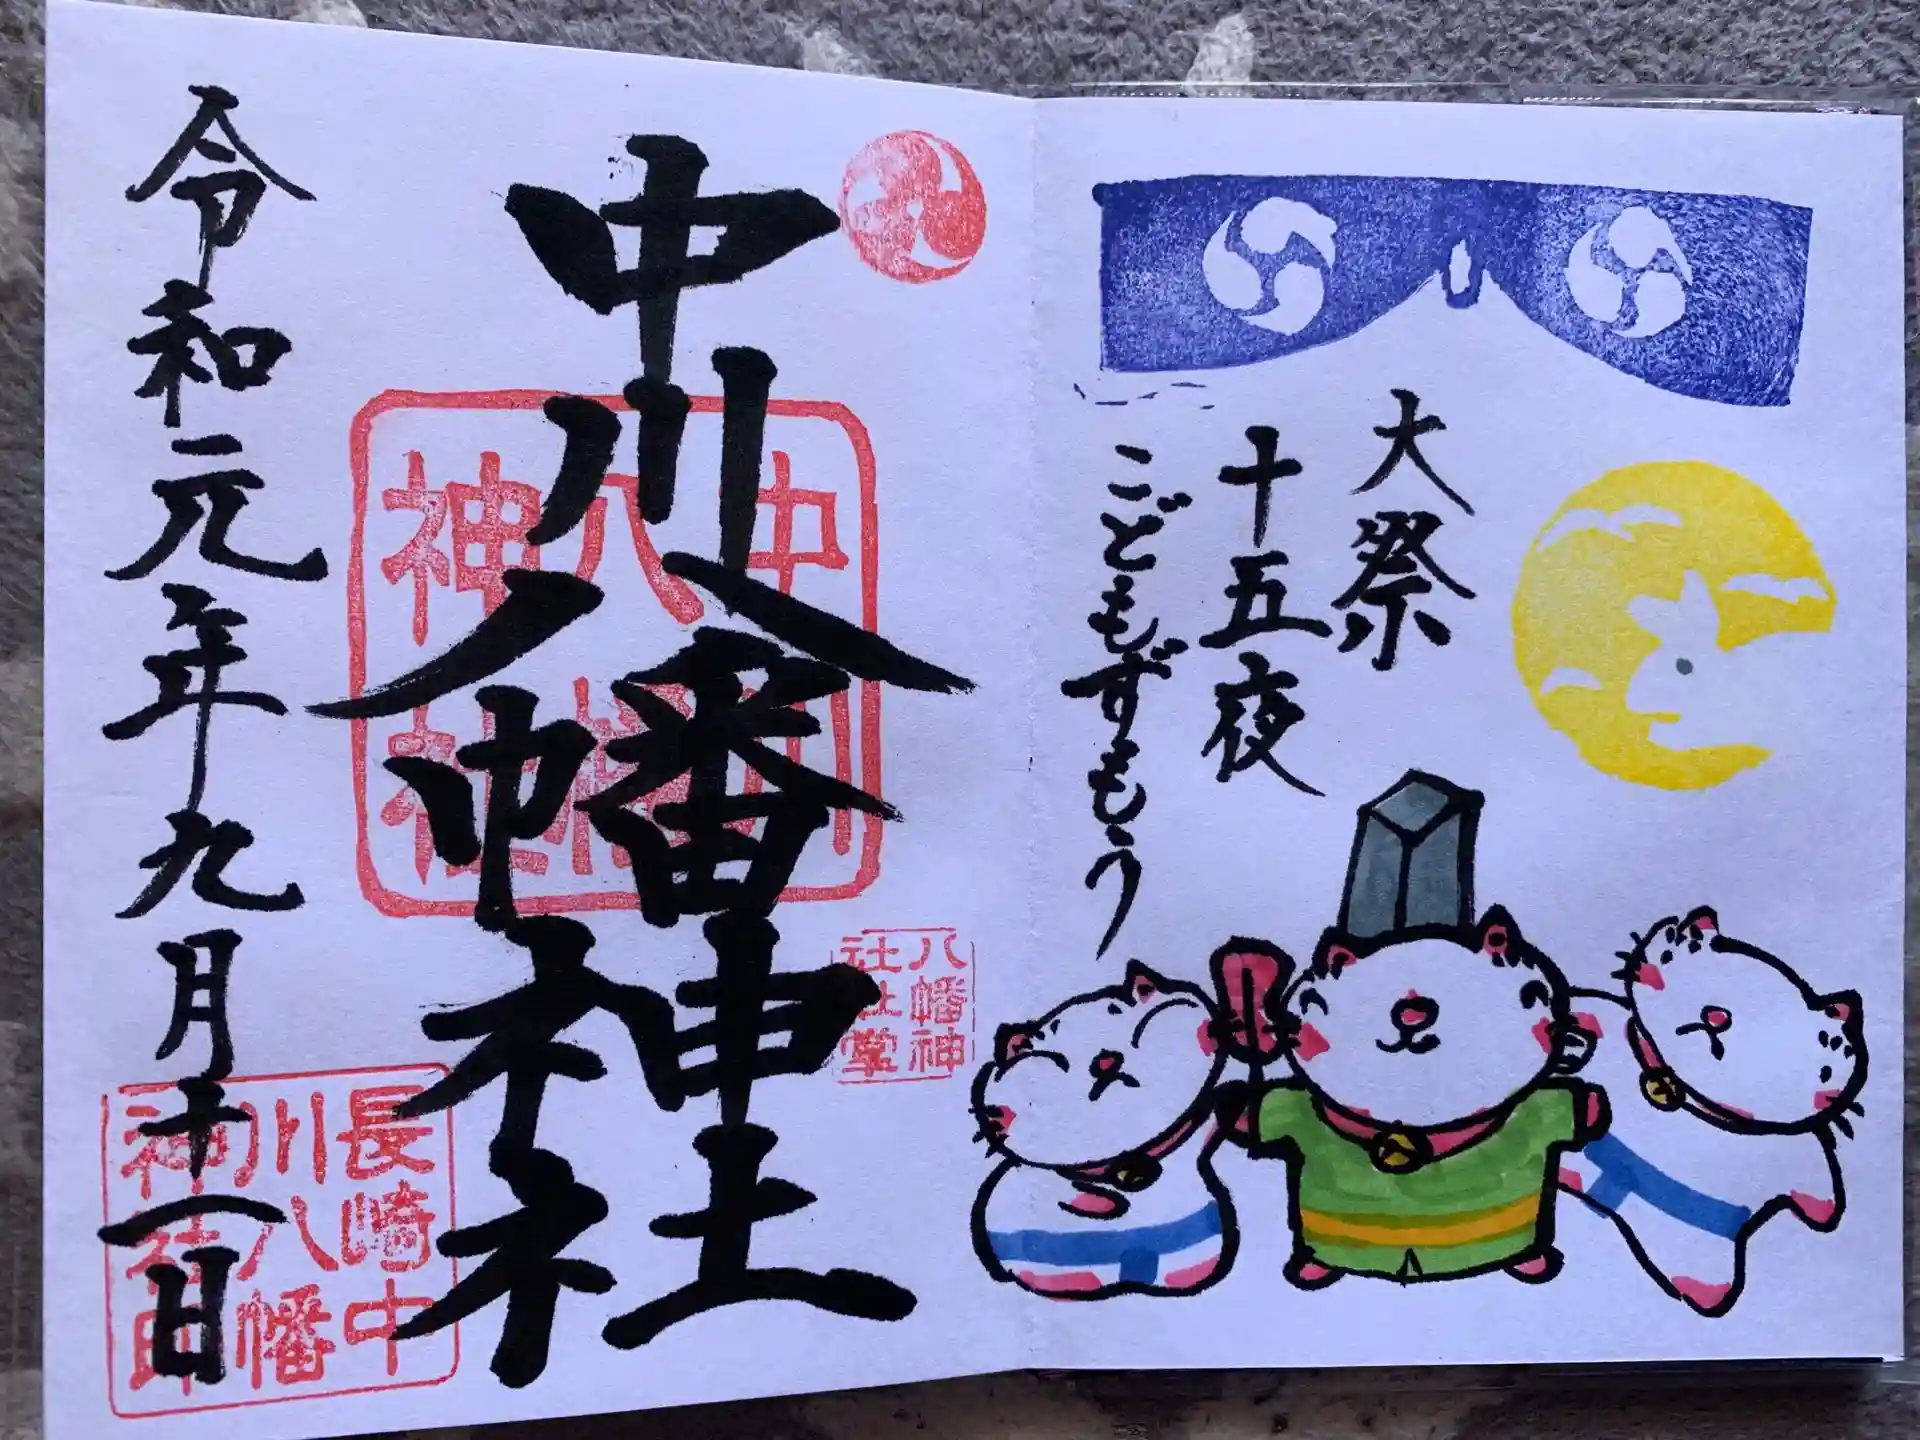 大祭
十五夜
こどもずもう
中川八幡神社
令和元年九月十一日
中川
八幡
神社
八幡神
社社掌
長崎中
川八幡
神社印